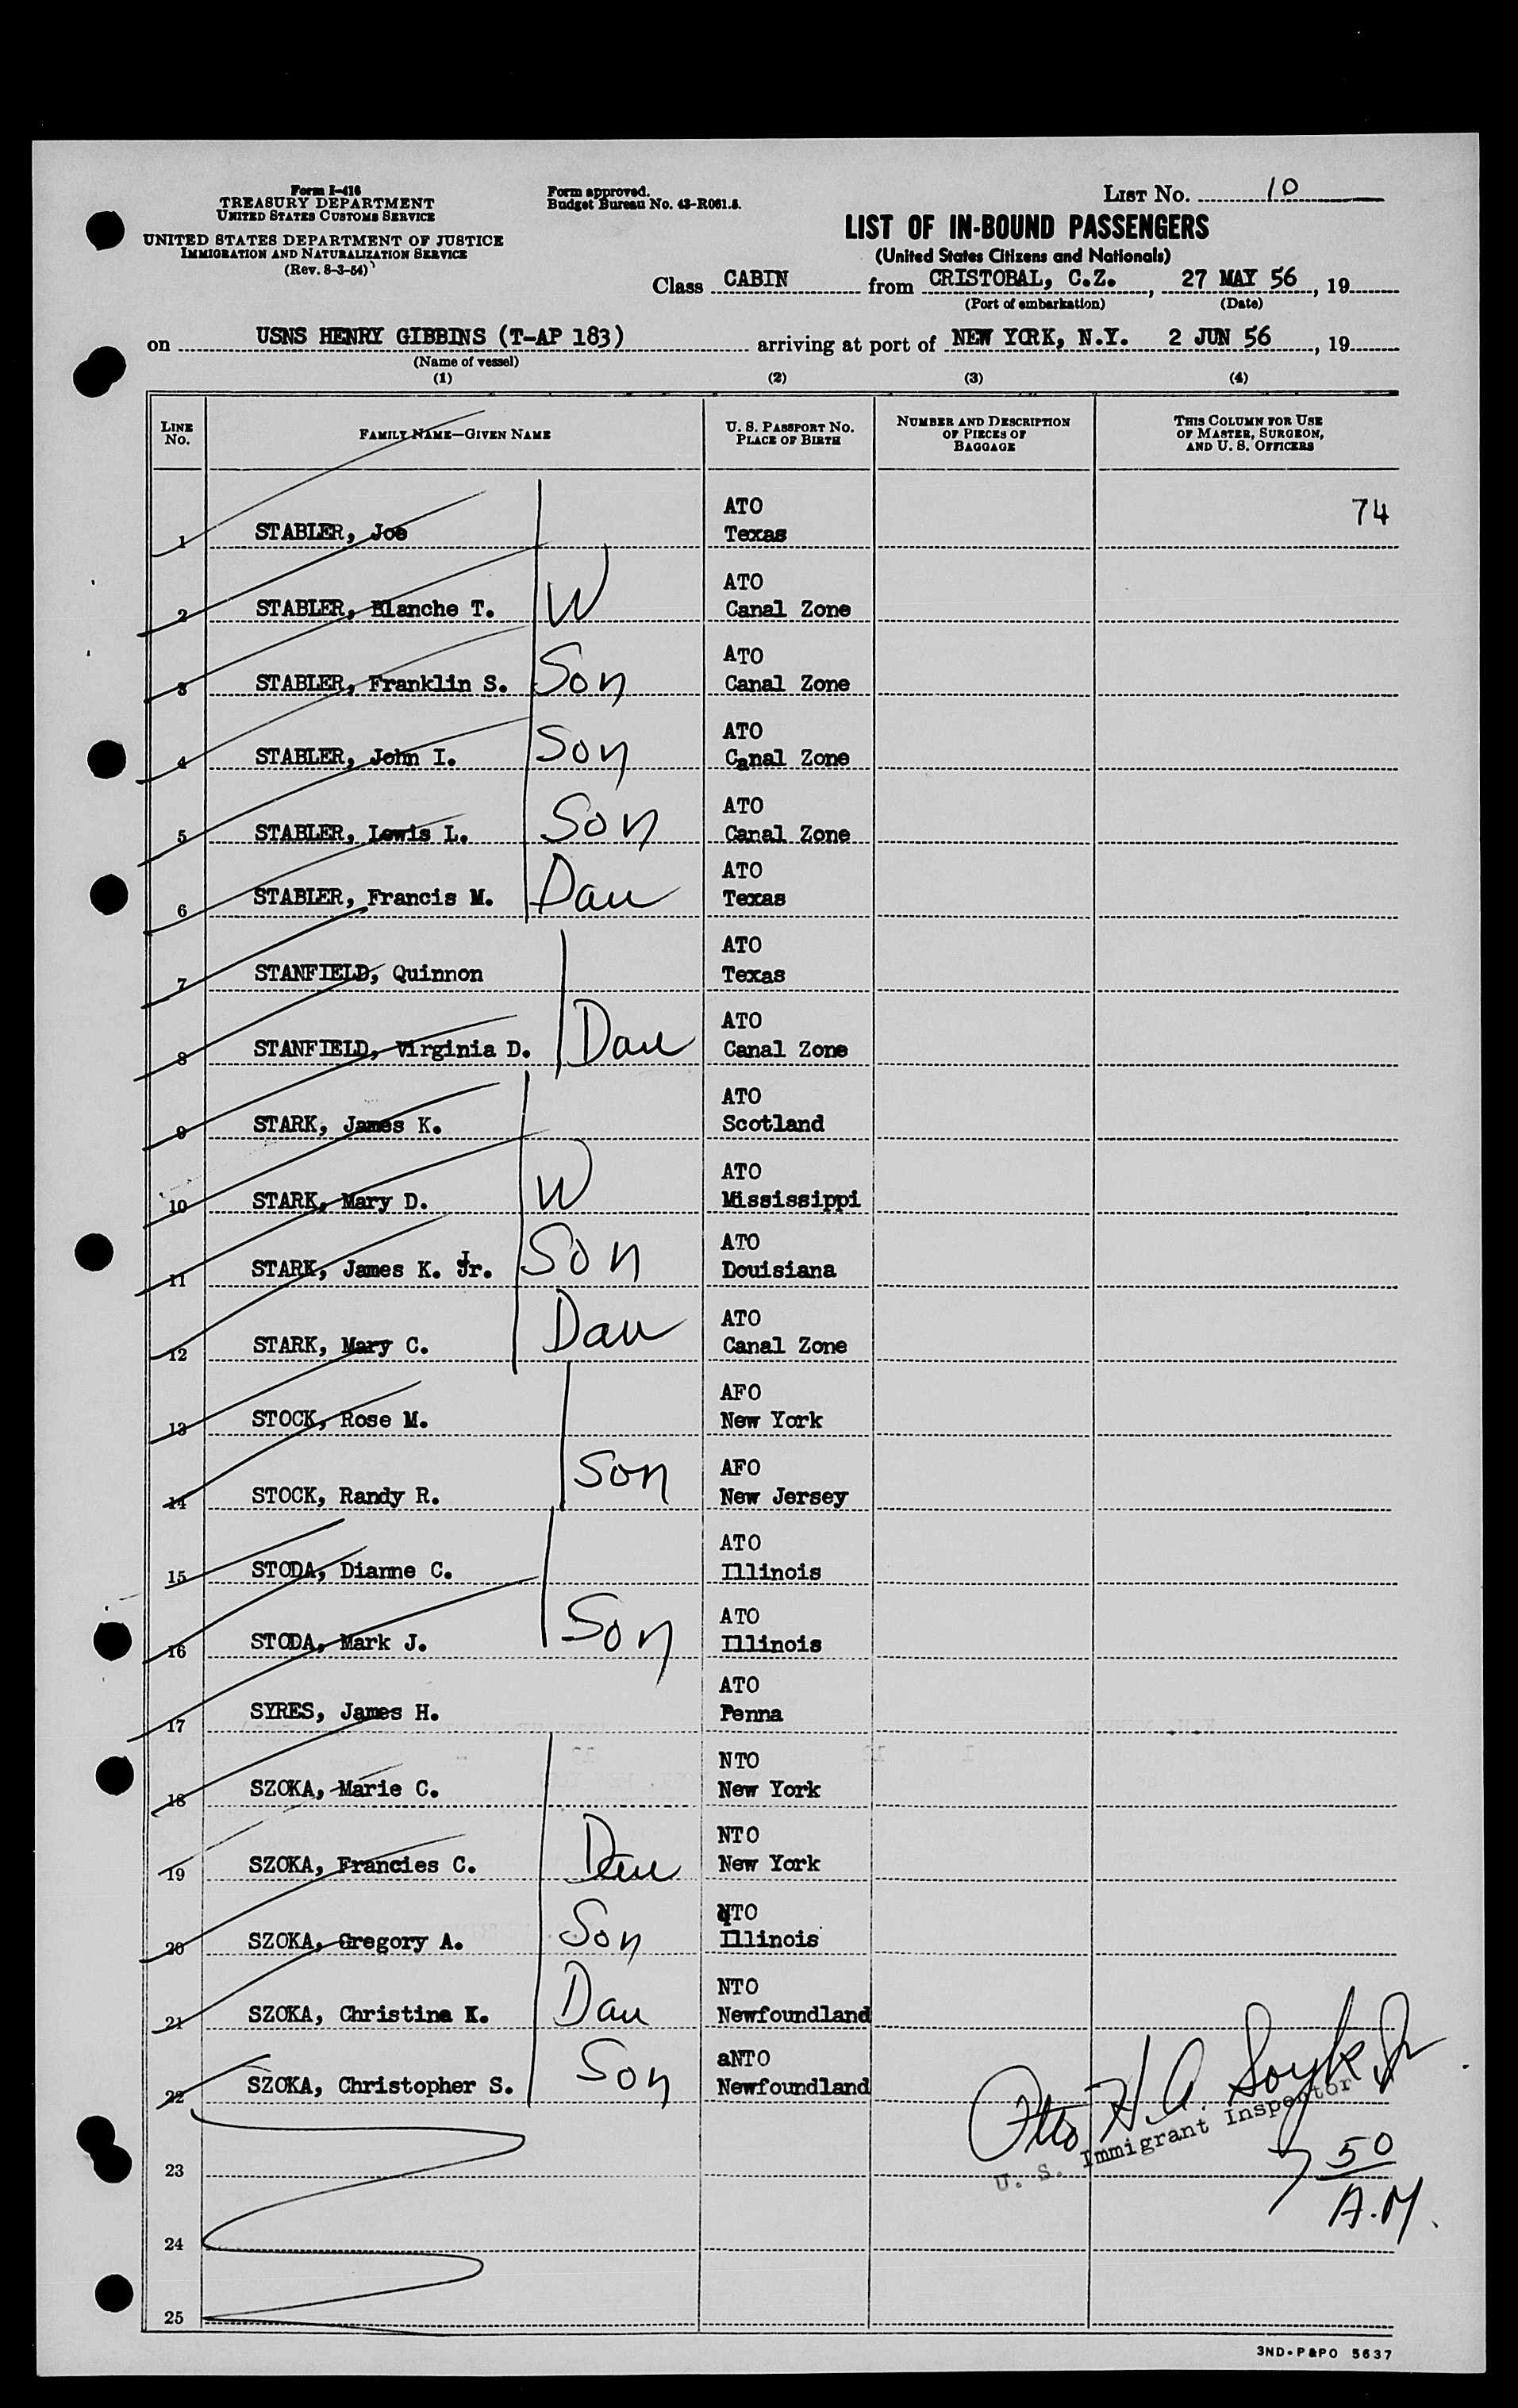 Form I-416
TREASURY DEPARTMENT
UNITED STATES CUSTOMS SERVICE
UNITED STATES DEPARTMENT OF JUSTICE
IMMIGRATION AND NATURALIZATION SERVICE
(Rev. 8-3-54)
Form approved.
Budget Bureau No. 43-R061.5.
LIST NO. 10
LIST OF IN-BOUND PASSENGERS
(United States Citizens and Nationals)
Class CABIN from CRISTOBAL, C.Z., 27 MAY 56, 19
(Port of embarkation) (Date)
on USNS HENRY GIBBINS (T-AP 183) arriving at port of NEW YORK, N.Y. 2 JUN 56, 19
(Name of vessel)
(1) (2) (3) (4)
LINE NO. FAMILY NAME—GIVEN NAME U. S. PASSPORT NO. PLACE OF BIRTH NUMBER AND DESCRIPTION OF PIECES OF BAGGAGE THIS COLUMN FOR USE OF MASTER, SURGEON, AND U. S. OFFICERS
ATO 74
1 STABLER, Joe Texas
ATO
2 STABLER, Blanche T. W Canal Zone
ATO
3 STABLER, Franklin S. Son Canal Zone
ATO
4 STABLER, John I. Son Canal Zone
ATO
5 STABLER, Lewis L. Son Canal Zone
ATO
6 STABLER, Francis M. Dau Texas
ATO
7 STANFIELD, Quinnon Texas
ATO
8 STANFIELD, Virginia D. Dau Canal Zone
ATO
9 STARK, James K. Scotland
ATO
10 STARK, Mary D. W Mississippi
ATO
11 STARK, James K. Jr. Son Douisiana
ATO
12 STARK, Mary C. Dau Canal Zone
AFO
13 STOCK, Rose M. New York
AFO
14 STOCK, Randy R. Son New Jersey
ATO
15 STODA, Dianne C. Illinois
ATO
16 STODA, Mark J. Son Illinois
ATO
17 SYRES, James H. Penna
NTO
18 SZOKA, Marie C. New York
NTO
19 SZOKA, Francies C. Dau New York
NTO
20 SZOKA, Gregory A. Son Illinois
NTO
21 SZOKA, Christina K. Dau Newfoundland
aNTO
22 SZOKA, Christopher S. Son Newfoundland
Otto H. A.
U. S. Immigrant Inspector
23
7 50
A.M.
24
25
3ND-P&PO 5637